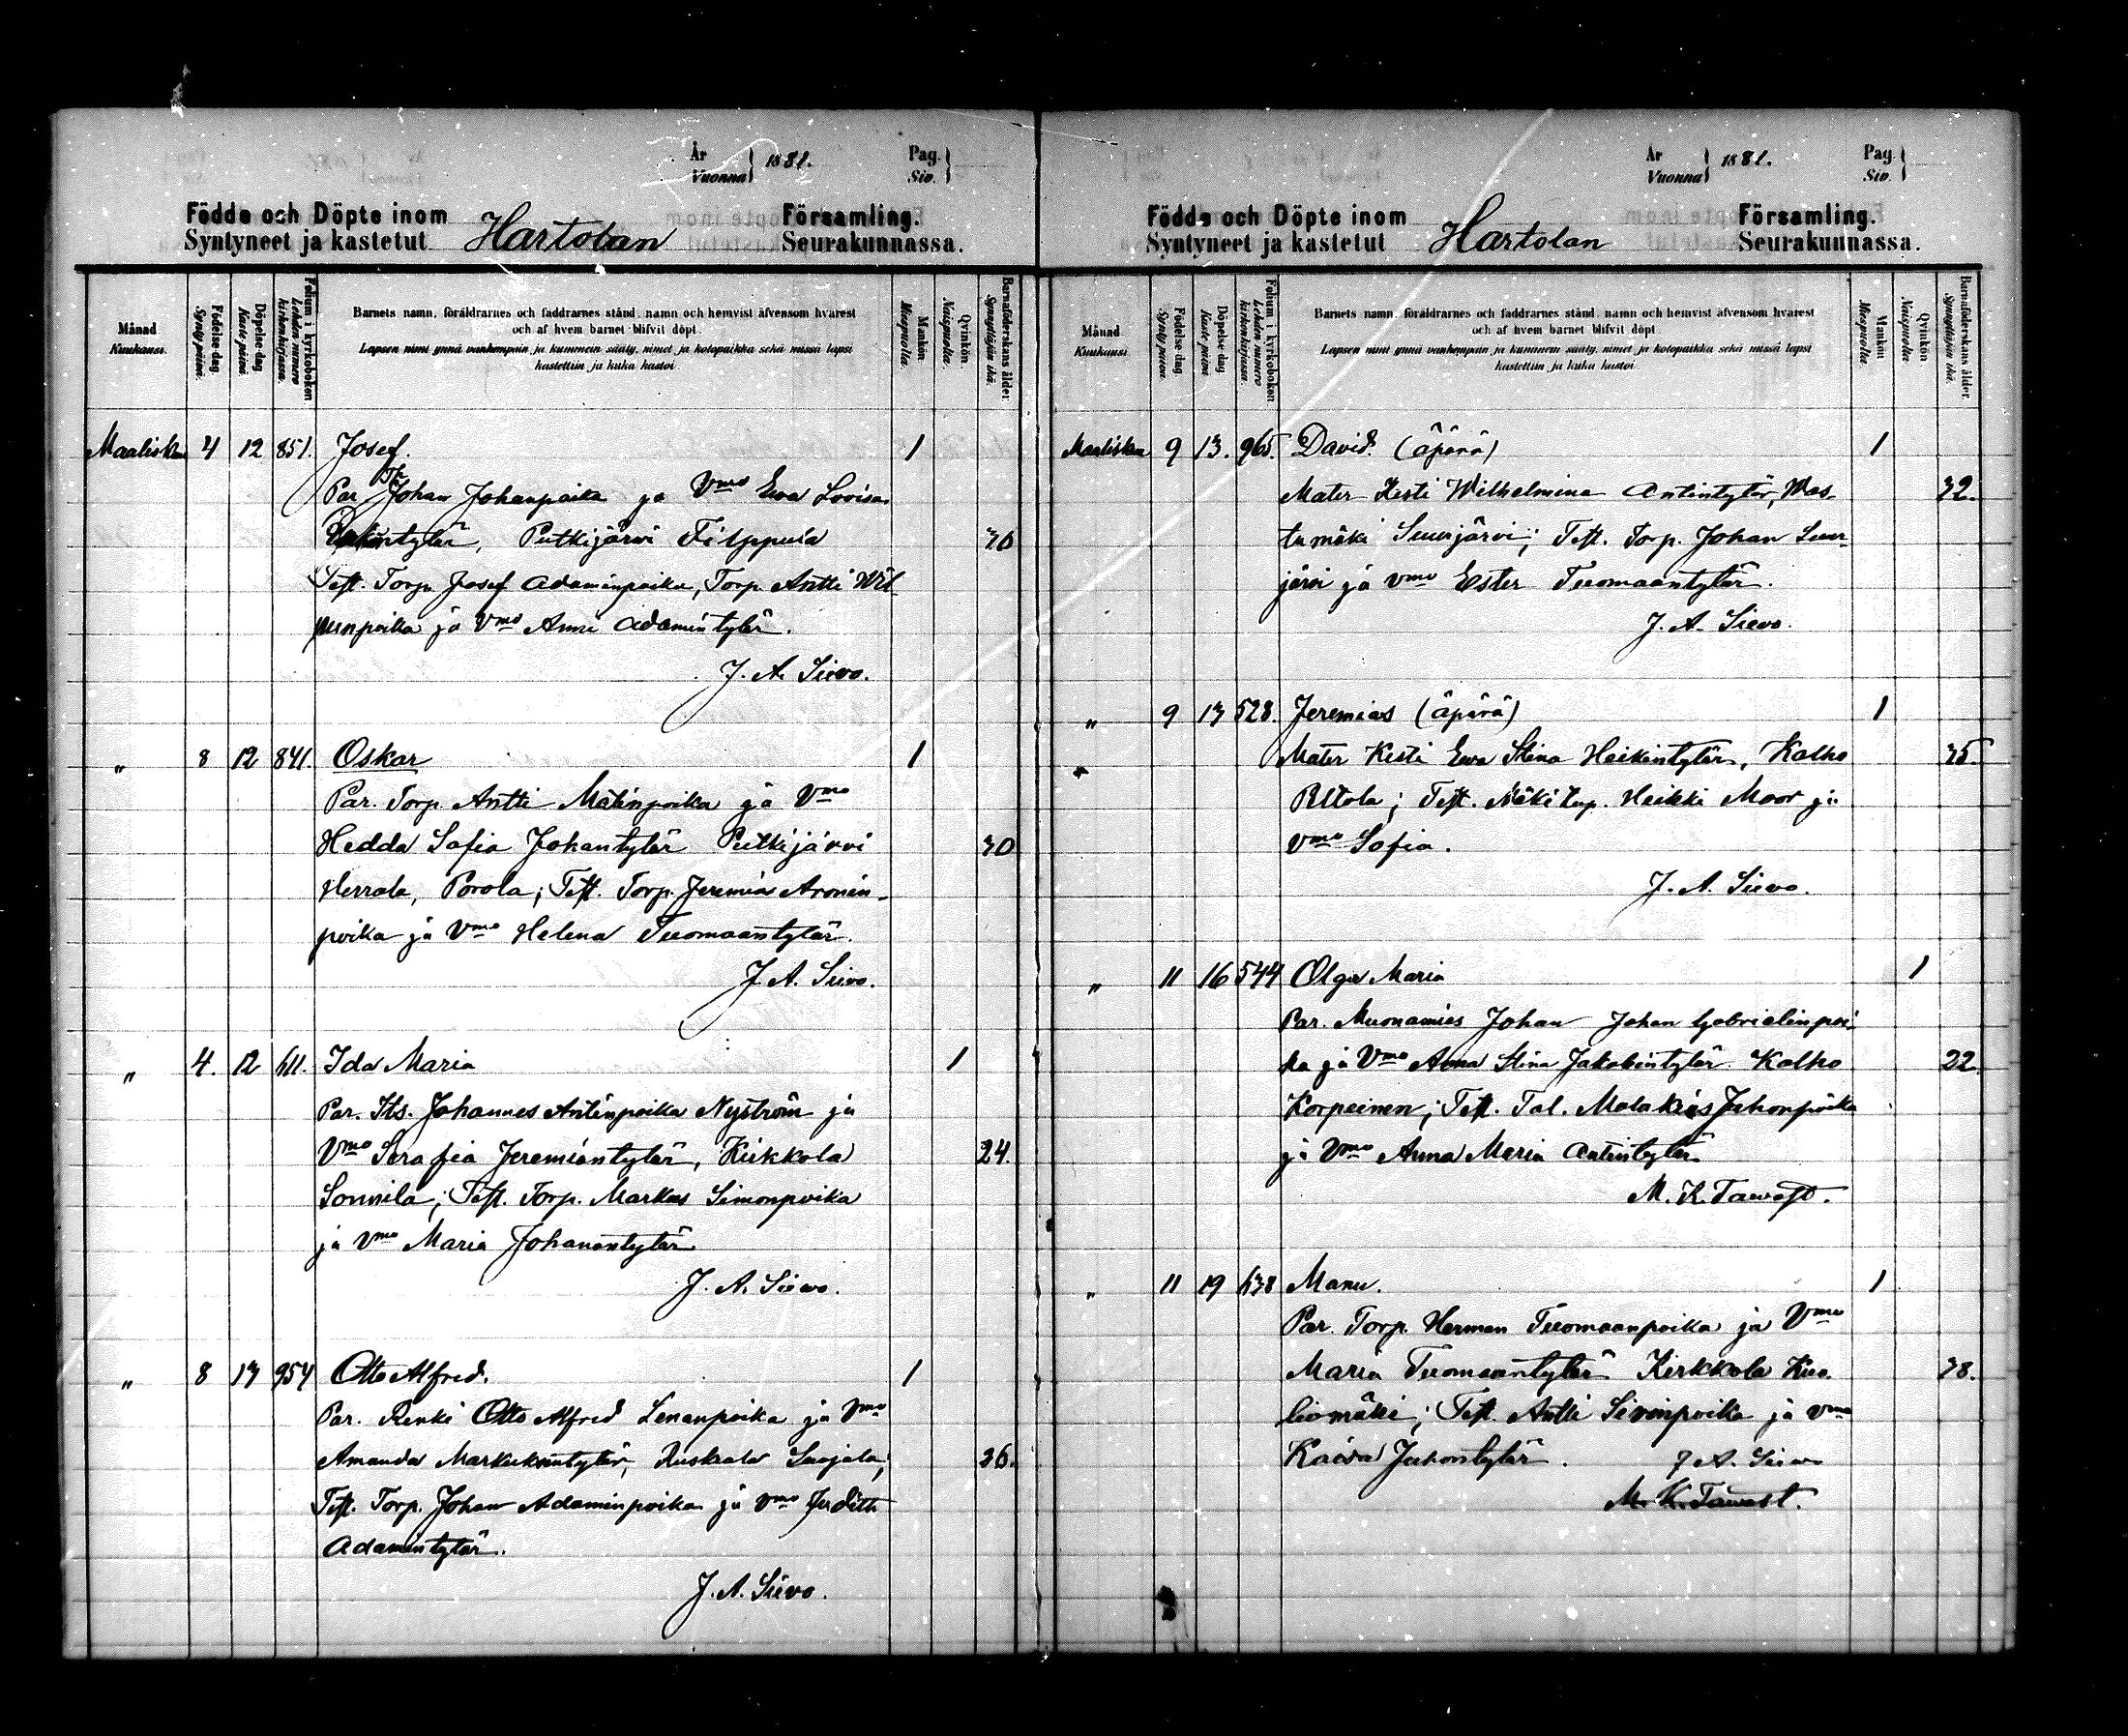 År
Vuonna } 1881.
Pag.
Siv. }
Födde och Döpte inom Hartolan Församling.
Syntyneet ja kastetut Seurakunnassa.
Månad
Kuukausi.
Födelse dag.
Synty päivä.
Döpelse dag
Kaste päivä.
Folium i kyrkoboken
Lehden numero kirkonkirjassa.
Barnets namn, föräldrarnes och faddrarnes stånd, namn och hemvist äfvensom hvarest
och af hvem barnet blifvit döpt.
Lapsen nimi ynnä vanhempain ja kummein sääty, nimet ja kotopaikka sekä missä lapsi
kastettiin ja kuka kastoi.
Mankön
Miespuolta.
Qvinkön.
Naispuolta.
Barnaföderskans ålder.
Synnyttäjän ikä.
Maalisku 4 12 851. Josef. 1
Par. Johan Johanpoika ja Vmo Ewa Lovisa
Putkijärvi Filppula 30
Test. Torp. Josef Adaminpoika, Torp. Antti Wil-
punpoika ja Vmo Anni Adamintytär.
J. A. Sievo.
" 8 12 841. Oskar 1
Par. Torp. Antti Matinpoika ja Vmo
Hedda Sofia Johantytär Putkijärvi 30
Herrala, Porola; Test. Torp. Jeremias Aronin-
poika ja Vmo Helena Tuomaantytär.
J. A. Sievo.
" 4. 12 611. Ida Maria 1
Par. Its. Johannes Antinpoika Nyström ja
Vmo Serafia Jeremiantytär, Kirkkola 24.
Sonnila; Test. Torp. Markus Simonpoika
ja Vmo Maria Johanantytär
J. A. Sievo.
" 8 13 954 Otto Alfred. 1
Par. Renki Otto Alfred Lenanpoika ja Vmo
Amanda Markuksentytär, Ruskala Suojala; 26.
Test. Torp. Johan Adaminpoika ja Vmo Judith
Adamintytär.
J. A. Sievo.
År
Vuonna } 1881.
Pag.
Siv. }
Födde och Döpte inom Hartolan Församling.
Syntyneet ja kastetut Seurakunnassa.
Månad
Kuukausi.
Födelse dag.
Synty päivä.
Döpelse dag
Kaste päivä.
Folium i kyrkoboken
Lehden numero kirkonkirjassa.
Barnets namn, föräldrarnes och faddrarnes stånd, namn och hemvist äfvensom hvarest
och af hvem barnet blifvit döpt
Lapsen nimi ynnä vanhempain ja kummein sääty, nimet ja kotopaikka sekä missä lapsi
kastettiin ja kuka kastoi.
Mankön
Miespuolta.
Qvinkön
Naispuolta.
Barnaföderskans ålder.
Synnyttäjän ikä.
Maalisku 9 13. 965. David. (äpärä) 1
Mater Kesti Wilhelmina Antintytär, Was- 32.
tamäki Suurjärvi; Test. Torp. Johan Suur-
järvi ja vmo Ester Tuomaantytär.
J. A. Sievo.
" 9 13 528. Jeremias (äpärä) 1
Mater Kesti Ewa Stina Heikintytär, Kalho 35.
Peltola; Test. Mäkitup. Heikki Moor ja
Vmo Sofia.
J. A. Sievo.
" 11 16 544 Olga Maria 1
Par. Muonamies Johan Johan Gabrielinpoi-
ka ja Vmo Anna Stina Jakobintytär Kalho 22
Korpeinen; Test. Tal. Malakias Juhonpoika
ja Vmo Anna Maria Antintytär
M. K. Tawast.
" 11 19 638 Manu. 1
Par. Torp. Herman Tuomaanpoika ja Vmo
Maria Tuomaantytär Kirkkola Kuo- 38.
liomäki; Test. Antti Simonpoika ja vmo
Kaisa Juhontytär. J A. Sievo
M. K. Tawast.